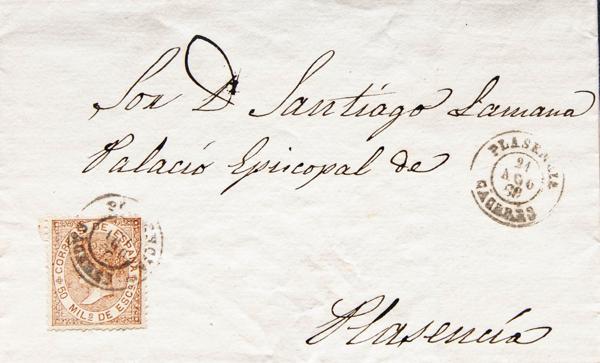 Sor D. Santiago Lamana
Palacio Episcopal de
Plasencia
PLASENCIA
21
AGO
68
CACERES
CORREOS DE ESPAÑA
50 MILS DE ESCO